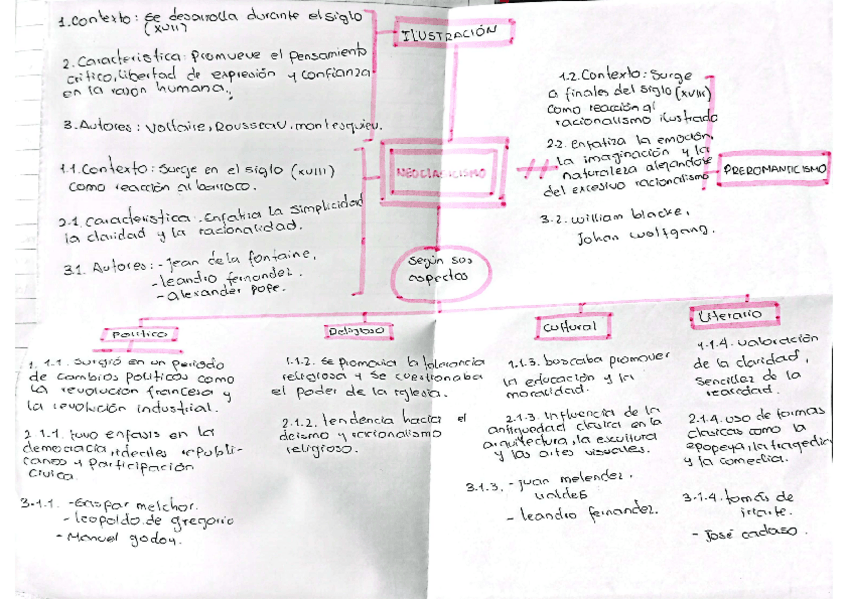 1. Contexto: se desarrolla durante el siglo
(XVII)
2. Caracteristica: Promueve el pensamiento
critico, libertad de expresión y confianza
en la razon humana.
3. Autores: Voltaire, Rousseau, montesquieu.
ILUSTRACIÓN
1.1. Contexto: Surge en el siglo (XVIII)
como reacción al barroco.
2.1 Caracteristica: Enfatiza la simplicidad
la claridad y la racionalidad.
3.1. Autores: - Jean de la fontaine.
- leandro fernandez.
- alexander pope.
NEOCLASICISMO
1.2. Contexto: Surge
a finales del siglo (XVIII)
como reacción al
racionalismo ilustrado
2.2. Enfatiza la emoción,
la imaginación y la
naturaleza alejandose
del excesivo racionalismo
3.2. William blacke,
Johan wolfgang.
PREROMANTICISMO
Según sus
aspectos
Politico
1.1.1. Surgió en un periodo
de cambios politicos como
la revolución francesa y
la revolución industrial.
2.1.1. tuvo enfasis en la
democracia, ideales republi-
canos y participación
civica.
3.1.1. - Gaspar melchor.
- leopoldo de gregorio
- Manuel godoy.
Religioso
1.1.2. se promovia la tolerancia
religiosa y se cuestionaba
el poder de la iglesia.
2.1.2. tendencia hacia el
deismo y racionalismo
religioso.
Cultural
1.1.3. buscaba promover
la educación y la
moralidad.
2.1.3. Influencia de la
antiguedad clasica en la
arquitectura, la escultura
y las artes visuales.
3.1.3. - Juan melendez.
valdes
- leandro fernandez.
Literario
1.1.4. valoración
de la claridad,
sencillez de la
realidad.
2.1.4. uso de formas
clasicas como la
epopeya, la tragedia
y la comedia.
3.1.4. tomás de
iriarte.
- José cadaso.